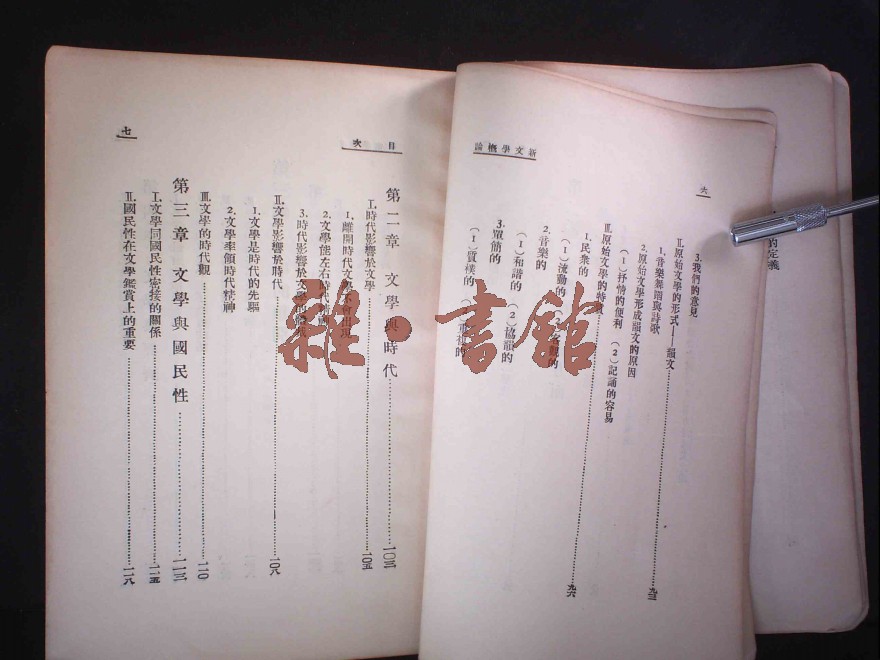 新文學概論
六
3.我們的意見
Ⅱ.原始文學的形式——韻文……九三
1.音樂舞蹈與詩歌
2.原始文學形成韻文的原因
(1)抒情的便利 (2)記誦的容易
Ⅲ.原始文學的特……九六
1.民衆的
(1)流動的 (2)客觀的
2.音樂的
(1)和諧的 (2)協韻的
3.單簡的
(1)質樸的 (2)重複的
的定義
目次
七
第二章 文學與時代……一〇三
Ⅰ.時代影響於文學……一〇五
1.離開時代文學
2.文學能左右時代
3.時代影響於文學的
Ⅱ.文學影響於時代……一〇八
1.文學是時代的先驅
2.文學率領時代精神
Ⅲ.文學的時代觀……一一〇
第三章 文學與國民性……一一三
Ⅰ.文學同國民性密接的關係……一一五
Ⅱ.國民性在文學鑑賞上的重要……一一八
雜·書館